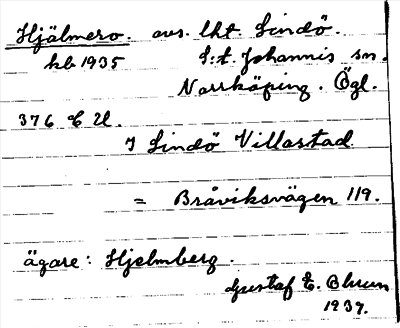 Hjälmero. avs. lht. Lindö.
kb 1935 S:t. Johannis sn.
Norrköping. Ögl.
376 C U.
I Lindö Villastad
= Bråviksvägen 119.
ägare: Hjelmberg.
Gustaf E.
1937.